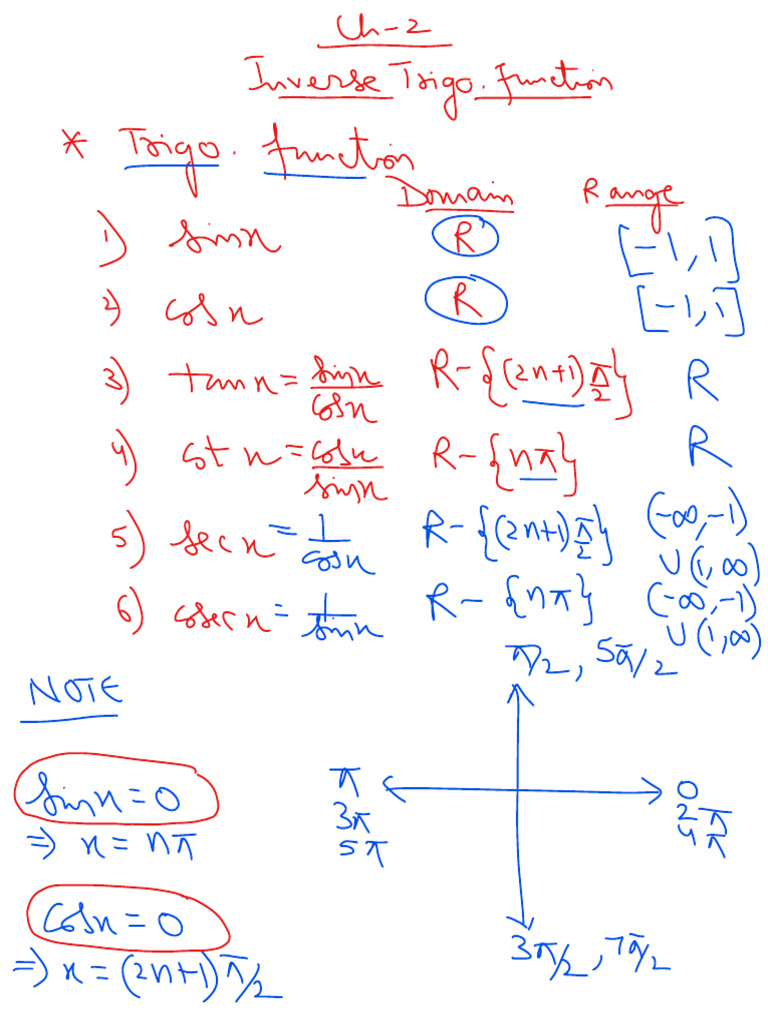 Ch-2
Inverse Trigo. function
* Trigo. function
Domain Range
1) sinx R [-1,1]
2) cosx R [-1,1]
3) tanx = sinx/cosx R-{(2n+1)π/2} R
4) cotx = cosx/sinx R-{nπ} R
5) secx = 1/cosx R-{(2n+1)π/2} (-∞,-1) ∪(1,∞)
6) cosecx = 1/sinx R-{nπ} (-∞,-1) ∪(1,∞)
π/2, 5π/2
NOTE
sinx=0
π 0
3π 2π
5π 4π
⇒ x=nπ
cosx=0
3π/2, 7π/2
⇒ x=(2n+1)π/2